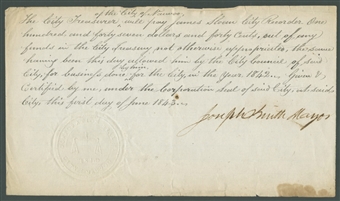 of the City of Nauvoo,
The City Treasurer will pay James Sloan City Recorder One
hundred and forty seven dollars and forty Cents, out of any
funds in the City Treasury not otherwise appropriated, the same
having been this day allowed him by the City Council of said
City, for business done for the City in the year 1842. Given &
by him
Certified by me, under the Corporation seal of said City, at said
City, this first day of June 1843.
Joseph Smith Mayor